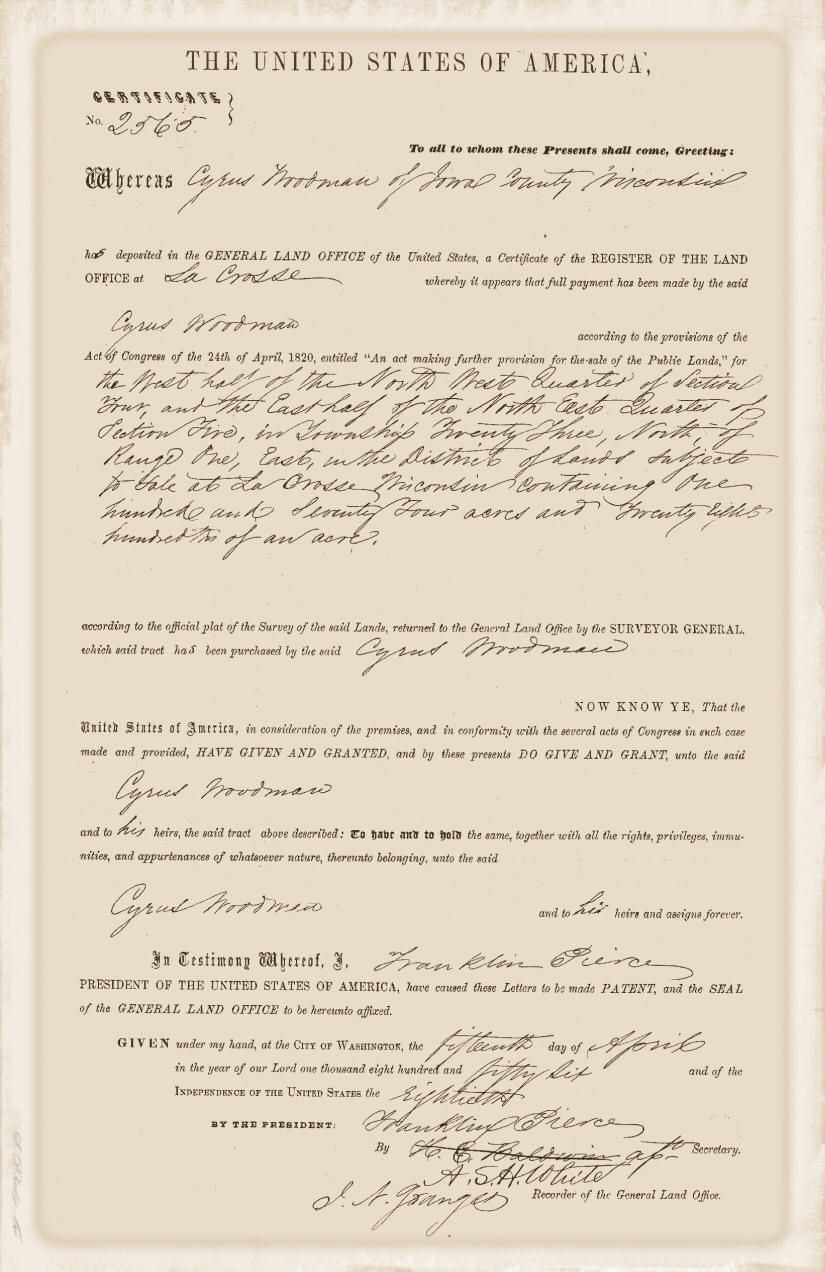 THE UNITED STATES OF AMERICA,
CERTIFICATE
No. 2565.
To all to whom these Presents shall come, Greeting:
Whereas Cyrus Woodman of Iowa County Wisconsin
has deposited in the GENERAL LAND OFFICE of the United States, a Certificate of the REGISTER OF THE LAND
OFFICE at La Crosse whereby it appears that full payment has been made by the said
Cyrus Woodman according to the provisions of the
Act of Congress of the 24th of April, 1820, entitled "An act making further provision for the sale of the Public Lands," for
the West half of the North West Quarter of Section
Four, and the East half of the North East Quarter of
Section Five, in Township Twenty Three, North, of
Range One, East, in the District of Lands Subject
to Sale at La Crosse Wisconsin containing One
hundred and Seventy Four acres and Twenty Eight
hundredths of an acre.
according to the official plat of the Survey of the said Lands, returned to the General Land Office by the SURVEYOR GENERAL,
which said tract has been purchased by the said Cyrus Woodman
NOW KNOW YE, That the
United States of America, in consideration of the premises, and in conformity with the several acts of Congress in such case
made and provided, HAVE GIVEN AND GRANTED, and by these presents DO GIVE AND GRANT, unto the said
Cyrus Woodman
and to his heirs, the said tract above described: To have and to hold the same, together with all the rights, privileges, immu-
nities, and appurtenances of whatsoever nature, thereunto belonging, unto the said
Cyrus Woodman and to his heirs and assigns forever.
In Testimony Whereof, I, Franklin Pierce
PRESIDENT OF THE UNITED STATES OF AMERICA, have caused these Letters to be made PATENT, and the SEAL
of the GENERAL LAND OFFICE to be hereunto affixed.
GIVEN under my hand, at the CITY OF WASHINGTON, the fifteenth day of April
in the year of our Lord one thousand eight hundred and fifty six and of the
INDEPENDENCE OF THE UNITED STATES the Eightieth
BY THE PRESIDENT: Franklin Pierce
By H. E. Baldwin ass't Secretary.
A. S. H. White
J. N. Granger Recorder of the General Land Office.